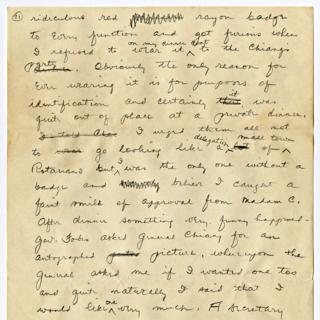 ridiculous red rayon badge
to every function and got furious when
I refused to wear it on my dinner coat to the Chiang's
party. Obviously the only reason for
ever wearing it is for purposes of
identification and certainly it was
quite out of place at a private dinner.
I urged them all not
to go looking like a delegation of small town
Rotarians but I was the only one without a
badge and believe I caught a
faint smile of approval from Madam C.
After dinner something very funny happened -
Gen. asked General Chiang for an
autographed picture, whereupon the
General asked me if I wanted one too
and quite naturally I said that I
would like one very much. A secretary